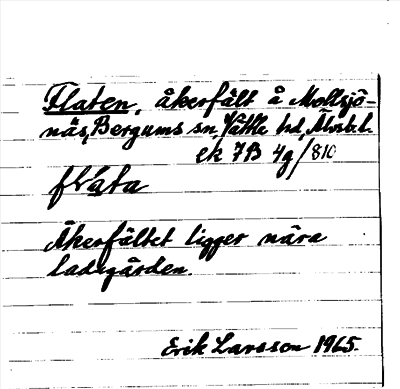 Flaten, åkerfält å Mollsjö-
näs, Bergums sn, Vättle hd, Älvsb. l.
ek 7B 4g/810
flata
Åkerfältet ligger nära
ladugården.
Erik Larsson 1965.